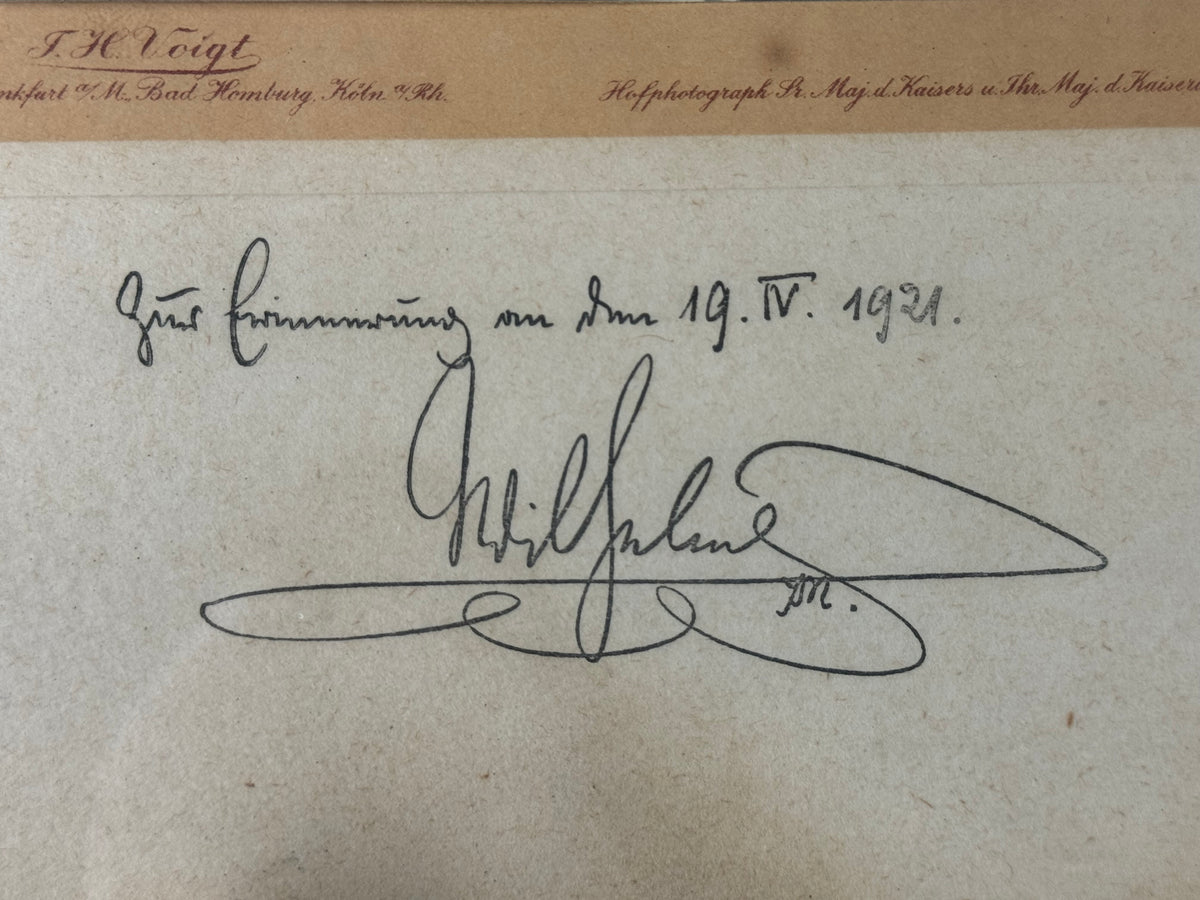 T. H. Voigt
nkfurt a/M., Bad Homburg, Köln a/Rh.
Hofphotograph Sr. Maj. d. Kaisers u. Ihr. Maj. d. Kaiseri
Zur Erinnerung an den 19. IV. 1921.
Wilhelm